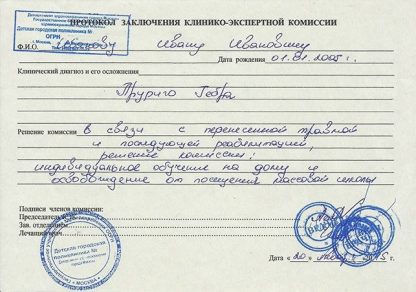 Департамент здравоохранения города Москвы
Детская городская поликлиника №
ОГРН
г. Москва,
ПРОТОКОЛ ЗАКЛЮЧЕНИЯ КЛИНИКО-ЭКСПЕРТНОЙ КОМИССИИ
Ф.И.О. Иванову Ивану Ивановичу
Дата рождения 01.01.2005 г.
Клинический диагноз и его осложнения
Пруриго Гебра
Решение комиссии В связи с перенесенной травмой
и последующей реабилитацией,
решение комиссии:
индивидуальное обучение на дому и
освобождение от посещения массовой школы
Подписи членов комиссии:
Председатель
Зав. отделением
Лечащий врач
Детская городская
поликлиника №
МОСКВА
Дата «20»